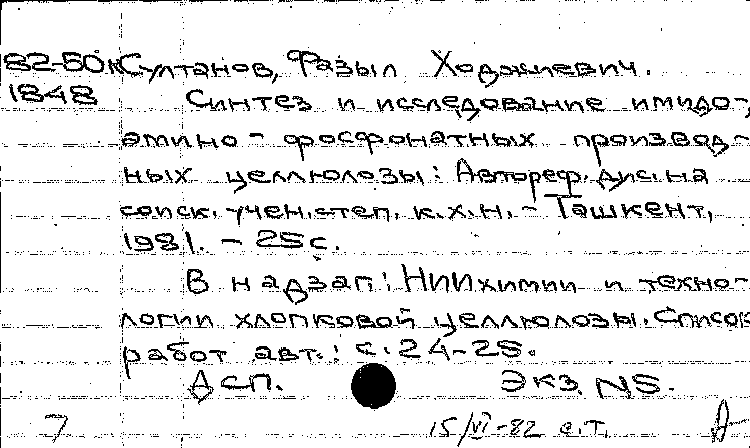 82-50к Султанов, Фазыл Ходжиевич.
1848 Синтез и исследование имидо-,
амино-фосфонатных производ-
ных целлюлозы: Автореф. дис. на
соиск. учен. степ. к.х.н. - Ташкент,
1981. - 25 с.
В надзаг: НИИ химии и техно-
логии хлопковой целлюлозы. Список
работ авт.: с. 24-25.
ДСП. Экз. N5.
7 15/VI-82 с.т.